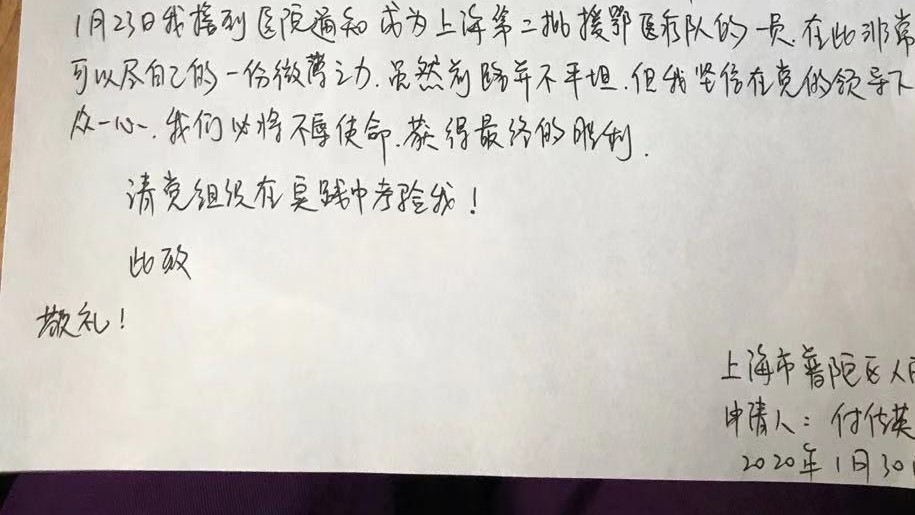 1月23日我接到医院通知成为上海第二批援鄂医疗队的一员.在此非常
可以尽自己的一份微薄之力.虽然前路并不平坦.但我坚信在党的领导下
众一心.我们必将不辱使命.获得最终的胜利.
请党组织在实践中考验我!
此致
敬礼!
上海市普陀区人民
申请人:付佐英
2020年1月30日